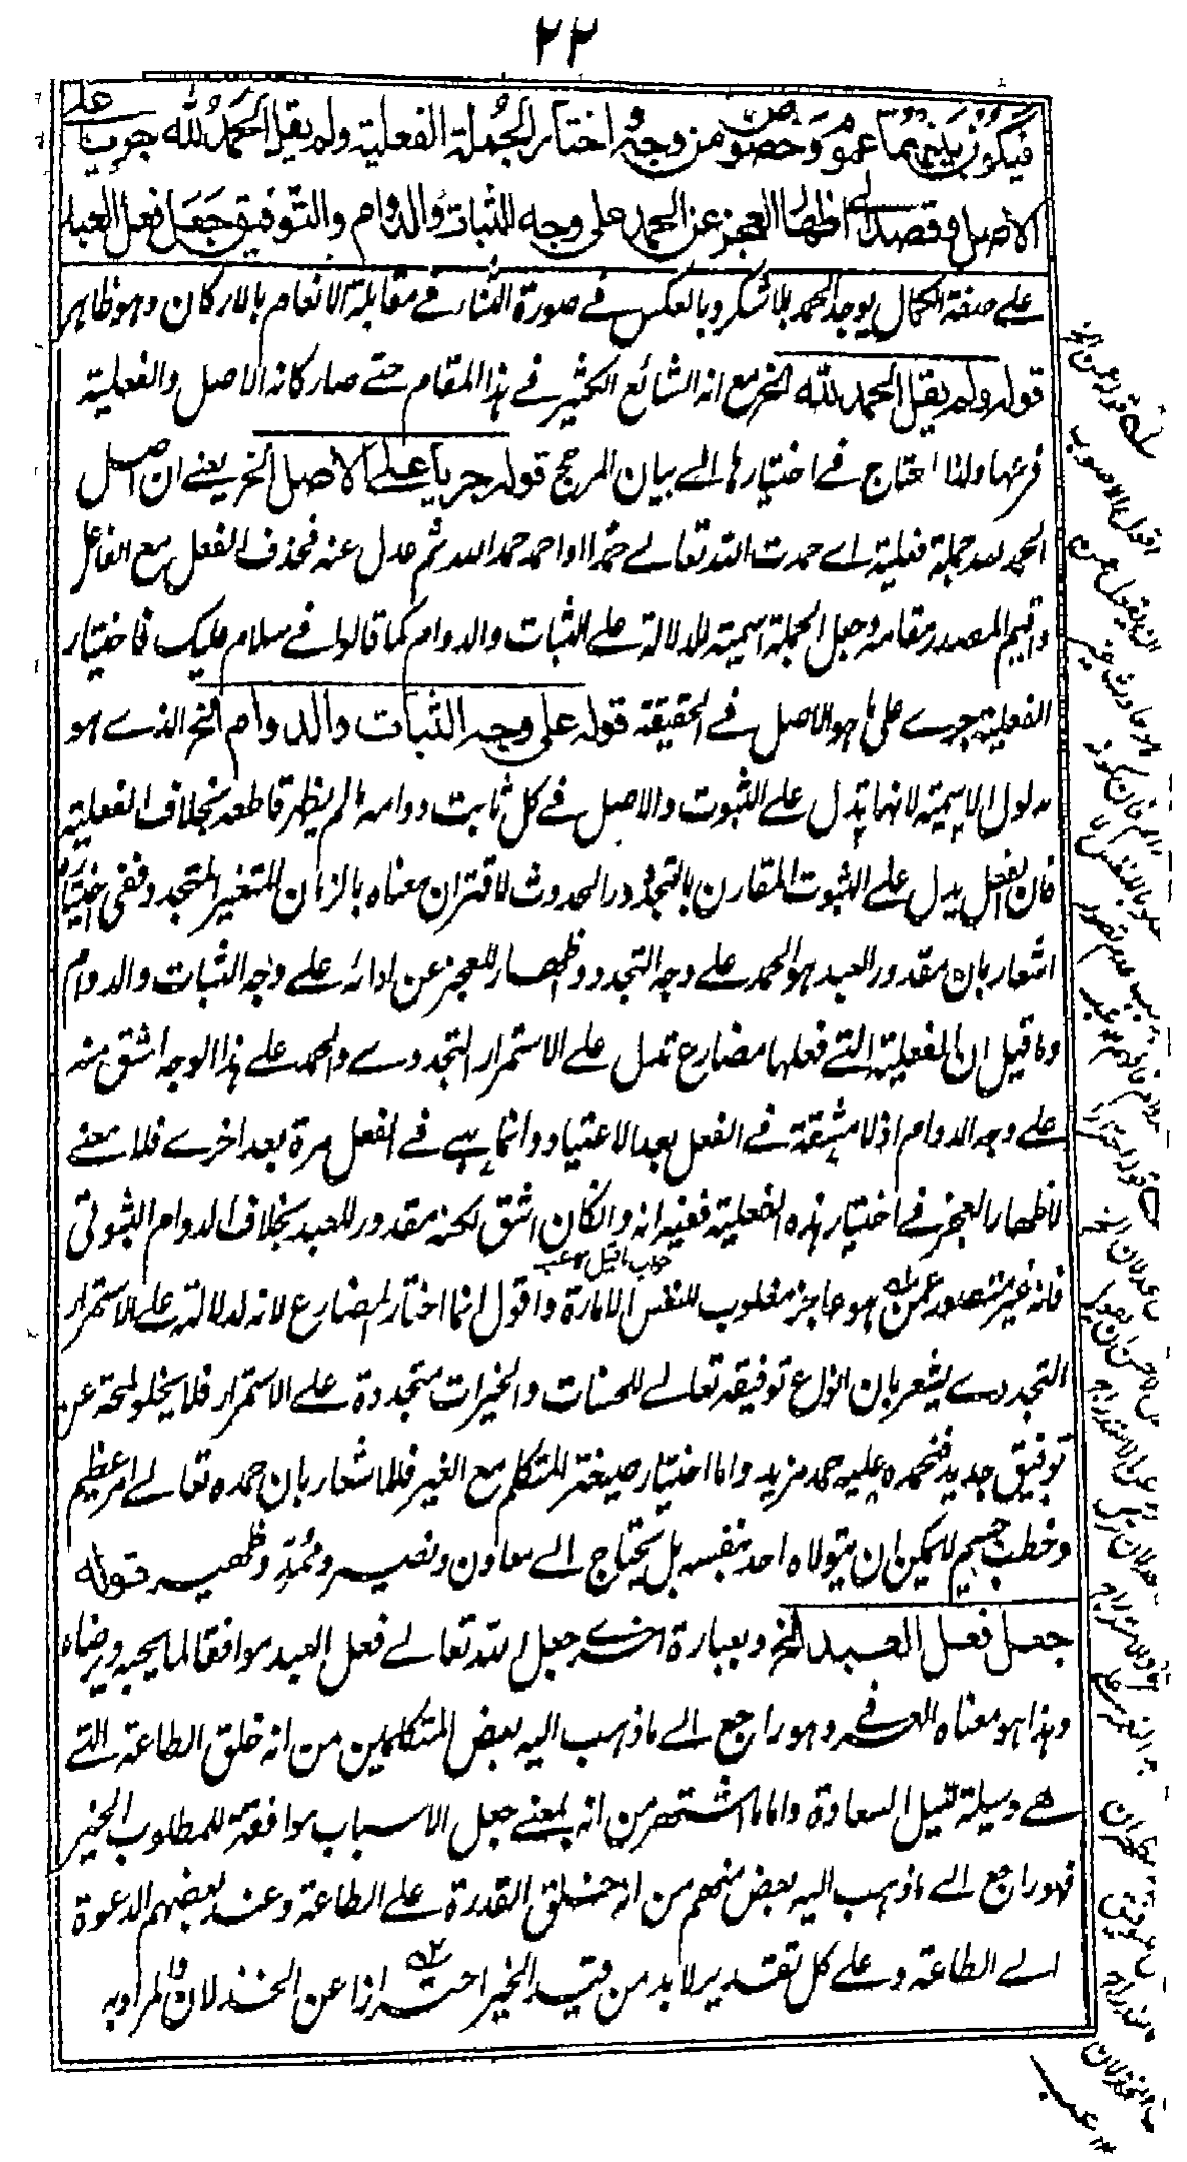 ٢٢
فيكون بينهما عموم وخصوص من وجه واختار الجملة الفعلية ولم يقل الحمد لله جريا على
الاصل وقصدا الى اظهار العجز عن الحمد على وجه الثبات والدوام والتوفيق جعل فعل العبد
على صفة الكمال يوجد الحمد بلا شكر وبالعكس في صورة الثناء في مقابلة الانعام بالاركان وهو ظاهر
قوله ولم يقل الحمد لله الخ مع انه الشائع الكثير في هذا المقام حتى صار كانه الاصل والفعلية
فرعها ولذا احتاج في اختيارها الى بيان المرجح قوله جريا على الاصل الخ يعني ان اصل
الحمد لله جملة فعلية اى حمدت الله تعالى حمدا او احمد حمدا لله ثم عدل عنه فحذف الفعل مع الفاعل
واقيم المصدر مقامه وجعل الجملة اسمية للدلالة على الثبات والدوام كما قالوا في سلام عليك فاختيار
الفعلية جرى على ما هو الاصل في الحقيقة قوله على وجه الثبات والدوام الخ الذى هو
مدلول الاسمية لانها تدل على الثبوت والاصل في كل ثابت دوامه ما لم يظهر قاطعه بخلاف الفعلية
فان الفعل يدل على الثبوت المقارن بالتجدد والحدوث لاقتران معناه بالزمان المتغير المتجدد ففى اختيارها
اشعار بان مقدور العبد هو الحمد على وجه التجدد واظهار للعجز عن ادائه على وجه الثبات والدوام
وما قيل ان الفعلية التى فعلها مضارع تدل على الاستمرار التجددى والحمد على هذا الوجه اشق منه
على وجه الدوام اذ لا مشقة فى الفعل بعد الاعتياد وانما هى فى الفعل مرة بعد اخرى فلا معنى
لاظهار العجز فى اختيار هذه الفعلية ففيه انه وان كان اشق لكنه مقدور للعبد بخلاف الدوام الثبوتى
جواب ما قيل ١٢ عب
فانه غير متصور عمن هو عاجز مغلوب للنفس الامارة واقول انما اختار المضارع لانه لدلالته على الاستمرار
التجددى يشعر بان انواع توفيقه تعالى للحسنات والخيرات متجددة على الاستمرار فلا يخلو لمحة عن
توفيق جديد فنحمده عليه حمد مزيد واما اختيار صيغة المتكلم مع الغير فللاشعار بان حمده تعالى امر عظيم
وخطب جسيم لا يمكن ان يتولاه احد بنفسه بل يحتاج الى معاون ونصير وممد وظهير قوله
جعل فعل العبد الخ وبعبارة اخرى جعل الله تعالى فعل العبد موافقا لما يحبه ويرضاه
وهذا هو معناه العرفى وهو راجع الى ما ذهب اليه بعض المتكلمين من انه خلق الطاعة التى
هى وسيلة لنيل السعادة واما ما اشتهر من انه بمعنى جعل الاسباب موافقة للمطلوب الخير
فهو راجع الى ما ذهب اليه بعض منهم من انه خلق القدرة على الطاعة وعند بعضهم الدعوة
الى الطاعة وعلى كل تقدير لابد من قيد الخير احترازا عن الخذلان والمراد به